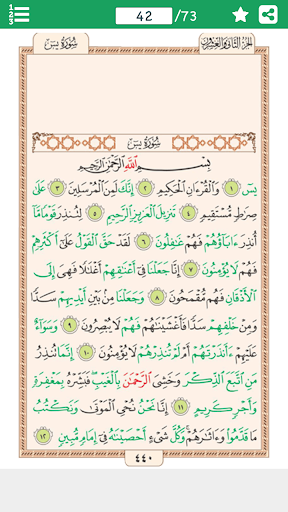 42 /73
سُورَةُ يسٓ الجزء الثاني والعشرون
سُورَةُ يسٓ
بِسْمِ ٱللَّهِ ٱلرَّحْمَٰنِ ٱلرَّحِيمِ
يسٓ ١ وَٱلْقُرْءَانِ ٱلْحَكِيمِ ٢ إِنَّكَ لَمِنَ ٱلْمُرْسَلِينَ ٣ عَلَىٰ
صِرَٰطٍ مُّسْتَقِيمٍ ٤ تَنزِيلَ ٱلْعَزِيزِ ٱلرَّحِيمِ ٥ لِتُنذِرَ قَوْمًا مَّآ
أُنذِرَ ءَابَآؤُهُمْ فَهُمْ غَٰفِلُونَ ٦ لَقَدْ حَقَّ ٱلْقَوْلُ عَلَىٰٓ أَكْثَرِهِمْ
فَهُمْ لَا يُؤْمِنُونَ ٧ إِنَّا جَعَلْنَا فِىٓ أَعْنَٰقِهِمْ أَغْلَٰلًا فَهِىَ إِلَى
ٱلْأَذْقَانِ فَهُم مُّقْمَحُونَ ٨ وَجَعَلْنَا مِنۢ بَيْنِ أَيْدِيهِمْ سَدًّا
وَمِنْ خَلْفِهِمْ سَدًّا فَأَغْشَيْنَٰهُمْ فَهُمْ لَا يُبْصِرُونَ ٩ وَسَوَآءٌ
عَلَيْهِمْ ءَأَنذَرْتَهُمْ أَمْ لَمْ تُنذِرْهُمْ لَا يُؤْمِنُونَ ١٠ إِنَّمَا تُنذِرُ
مَنِ ٱتَّبَعَ ٱلذِّكْرَ وَخَشِىَ ٱلرَّحْمَٰنَ بِٱلْغَيْبِ فَبَشِّرْهُ بِمَغْفِرَةٍ
وَأَجْرٍ كَرِيمٍ ١١ إِنَّا نَحْنُ نُحْىِ ٱلْمَوْتَىٰ وَنَكْتُبُ
مَا قَدَّمُوا۟ وَءَاثَٰرَهُمْ وَكُلَّ شَىْءٍ أَحْصَيْنَٰهُ فِىٓ إِمَامٍ مُّبِينٍ ١٢
٤٤٠